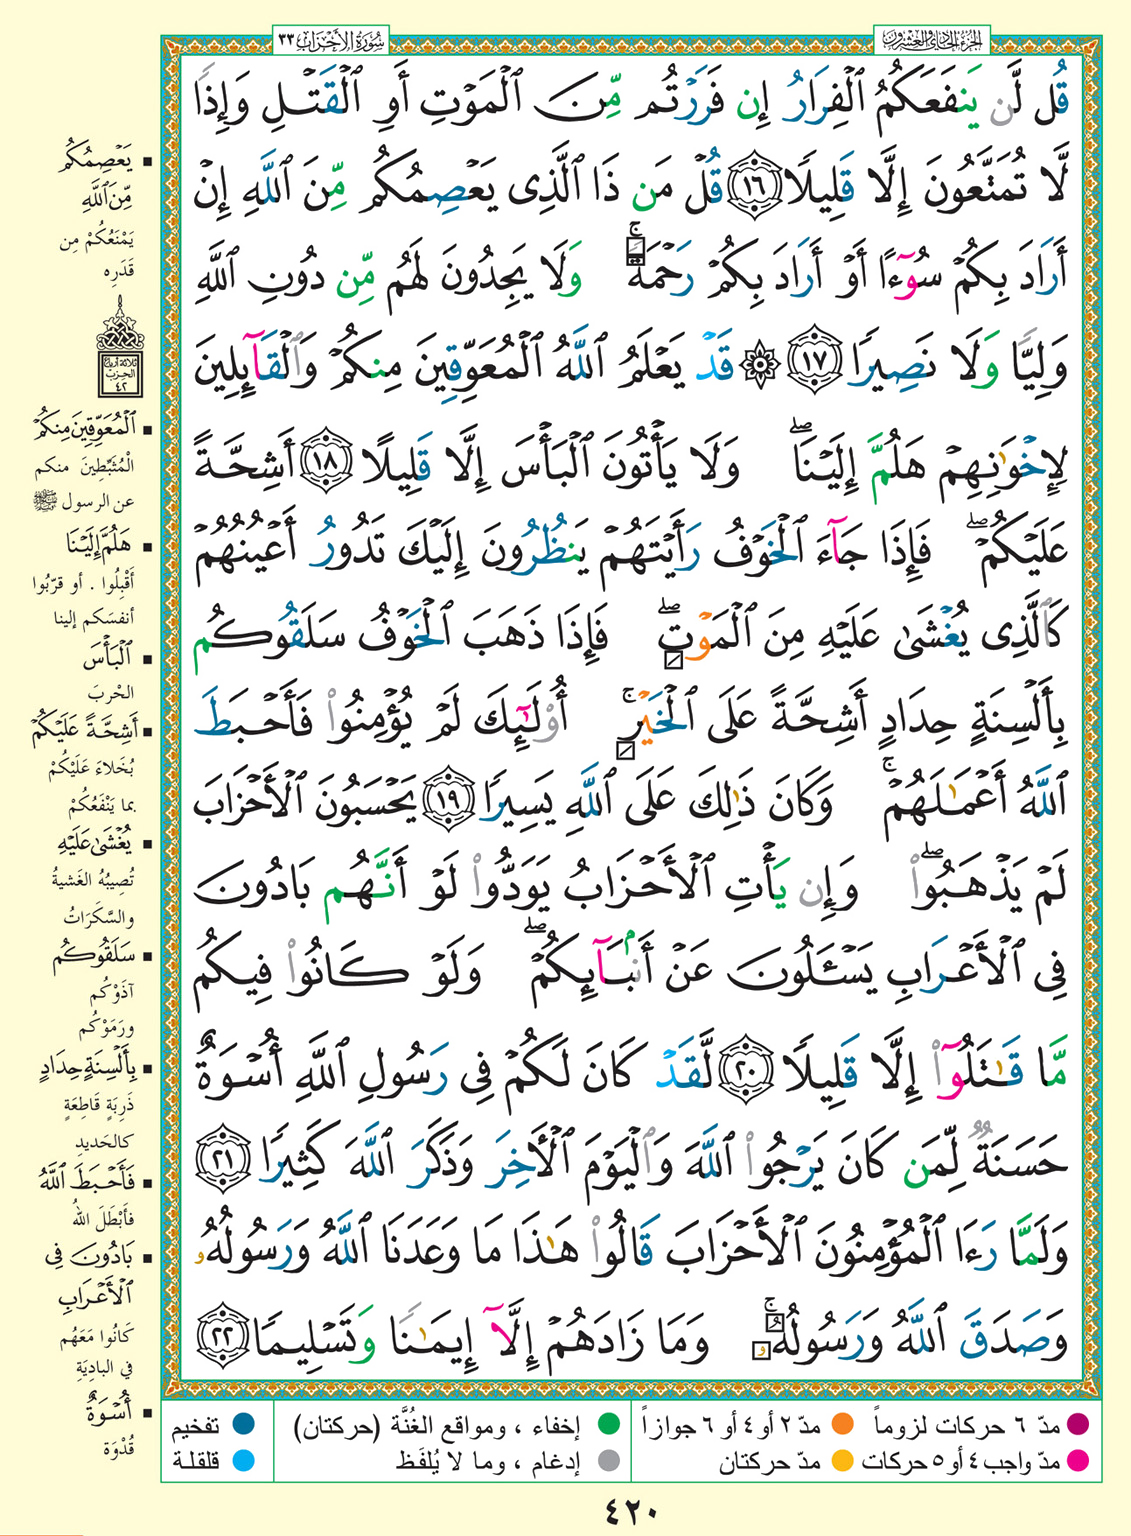 سُورَةُ الأَحْزَاب ٣٣
الجزء الحادي والعشرون
قُل لَّن يَنفَعَكُمُ ٱلْفِرَارُ إِن فَرَرْتُم مِّنَ ٱلْمَوْتِ أَوِ ٱلْقَتْلِ وَإِذًا
لَّا تُمَتَّعُونَ إِلَّا قَلِيلًا ١٦ قُلْ مَن ذَا ٱلَّذِى يَعْصِمُكُم مِّنَ ٱللَّهِ إِنْ
أَرَادَ بِكُمْ سُوٓءًا أَوْ أَرَادَ بِكُمْ رَحْمَةً ۚ وَلَا يَجِدُونَ لَهُم مِّن دُونِ ٱللَّهِ
وَلِيًّا وَلَا نَصِيرًا ١٧ ۞ قَدْ يَعْلَمُ ٱللَّهُ ٱلْمُعَوِّقِينَ مِنكُمْ وَٱلْقَآئِلِينَ
لِإِخْوَٰنِهِمْ هَلُمَّ إِلَيْنَا ۖ وَلَا يَأْتُونَ ٱلْبَأْسَ إِلَّا قَلِيلًا ١٨ أَشِحَّةً
عَلَيْكُمْ ۖ فَإِذَا جَآءَ ٱلْخَوْفُ رَأَيْتَهُمْ يَنظُرُونَ إِلَيْكَ تَدُورُ أَعْيُنُهُمْ
كَٱلَّذِى يُغْشَىٰ عَلَيْهِ مِنَ ٱلْمَوْتِ ۖ فَإِذَا ذَهَبَ ٱلْخَوْفُ سَلَقُوكُم
بِأَلْسِنَةٍ حِدَادٍ أَشِحَّةً عَلَى ٱلْخَيْرِ ۚ أُو۟لَـٰٓئِكَ لَمْ يُؤْمِنُوا۟ فَأَحْبَطَ
ٱللَّهُ أَعْمَـٰلَهُمْ ۚ وَكَانَ ذَٰلِكَ عَلَى ٱللَّهِ يَسِيرًا ١٩ يَحْسَبُونَ ٱلْأَحْزَابَ
لَمْ يَذْهَبُوا۟ ۖ وَإِن يَأْتِ ٱلْأَحْزَابُ يَوَدُّوا۟ لَوْ أَنَّهُم بَادُونَ
فِى ٱلْأَعْرَابِ يَسْـَٔلُونَ عَنْ أَنۢبَآئِكُمْ ۖ وَلَوْ كَانُوا۟ فِيكُم
مَّا قَـٰتَلُوٓا۟ إِلَّا قَلِيلًا ٢٠ لَّقَدْ كَانَ لَكُمْ فِى رَسُولِ ٱللَّهِ أُسْوَةٌ
حَسَنَةٌ لِّمَن كَانَ يَرْجُوا۟ ٱللَّهَ وَٱلْيَوْمَ ٱلْـَٔاخِرَ وَذَكَرَ ٱللَّهَ كَثِيرًا ٢١
وَلَمَّا رَءَا ٱلْمُؤْمِنُونَ ٱلْأَحْزَابَ قَالُوا۟ هَـٰذَا مَا وَعَدَنَا ٱللَّهُ وَرَسُولُهُۥ
وَصَدَقَ ٱللَّهُ وَرَسُولُهُۥ ۚ وَمَا زَادَهُمْ إِلَّآ إِيمَـٰنًا وَتَسْلِيمًا ٢٢
يَعْصِمُكُم
مِّنَ ٱللَّهِ
يَمْنَعُكُمْ مِن
قَدَرِه
ثلاثة أرباع
الحزب
٤٢
ٱلْمُعَوِّقِينَ مِنكُمْ
الْمُثَبِّطِينَ منكم
عن الرسول ﷺ
هَلُمَّ إِلَيْنَا
أَقْبِلُوا . أو قرّبُوا
أنفسَكم إلينا
ٱلْبَأْسَ
الحْربَ
أَشِحَّةً عَلَيْكُمْ
بُخَلاءَ عَلَيْكُمْ
بما يَنْفَعُكُمْ
يُغْشَىٰ عَلَيْهِ
تُصِيبُهُ الغَشيةُ
والسَّكَرَاتُ
سَلَقُوكُم
آذَوْكُم
ورَمَوْكُم
بِأَلْسِنَةٍ حِدَادٍ
ذَرِبَةٍ قَاطِعَةٍ
كالحَديدِ
فَأَحْبَطَ ٱللَّهُ
فأَبْطَلَ اللهُ
بَادُونَ فِى
ٱلْأَعْرَابِ
كَانُوا مَعَهُم
في البادِيَةِ
أُسْوَةٌ
قُدْوَة
مدّ ٦ حركات لزوماً
مدّ ٢ أو ٤ أو ٦ جوازاً
إخفاء ، ومواقع الغُنَّة (حركتان)
تفخيم
مدّ واجب ٤ أو ٥ حركات
مدّ حركتان
إدغام ، وما لا يُلفَظ
قلقلة
٤٢٠